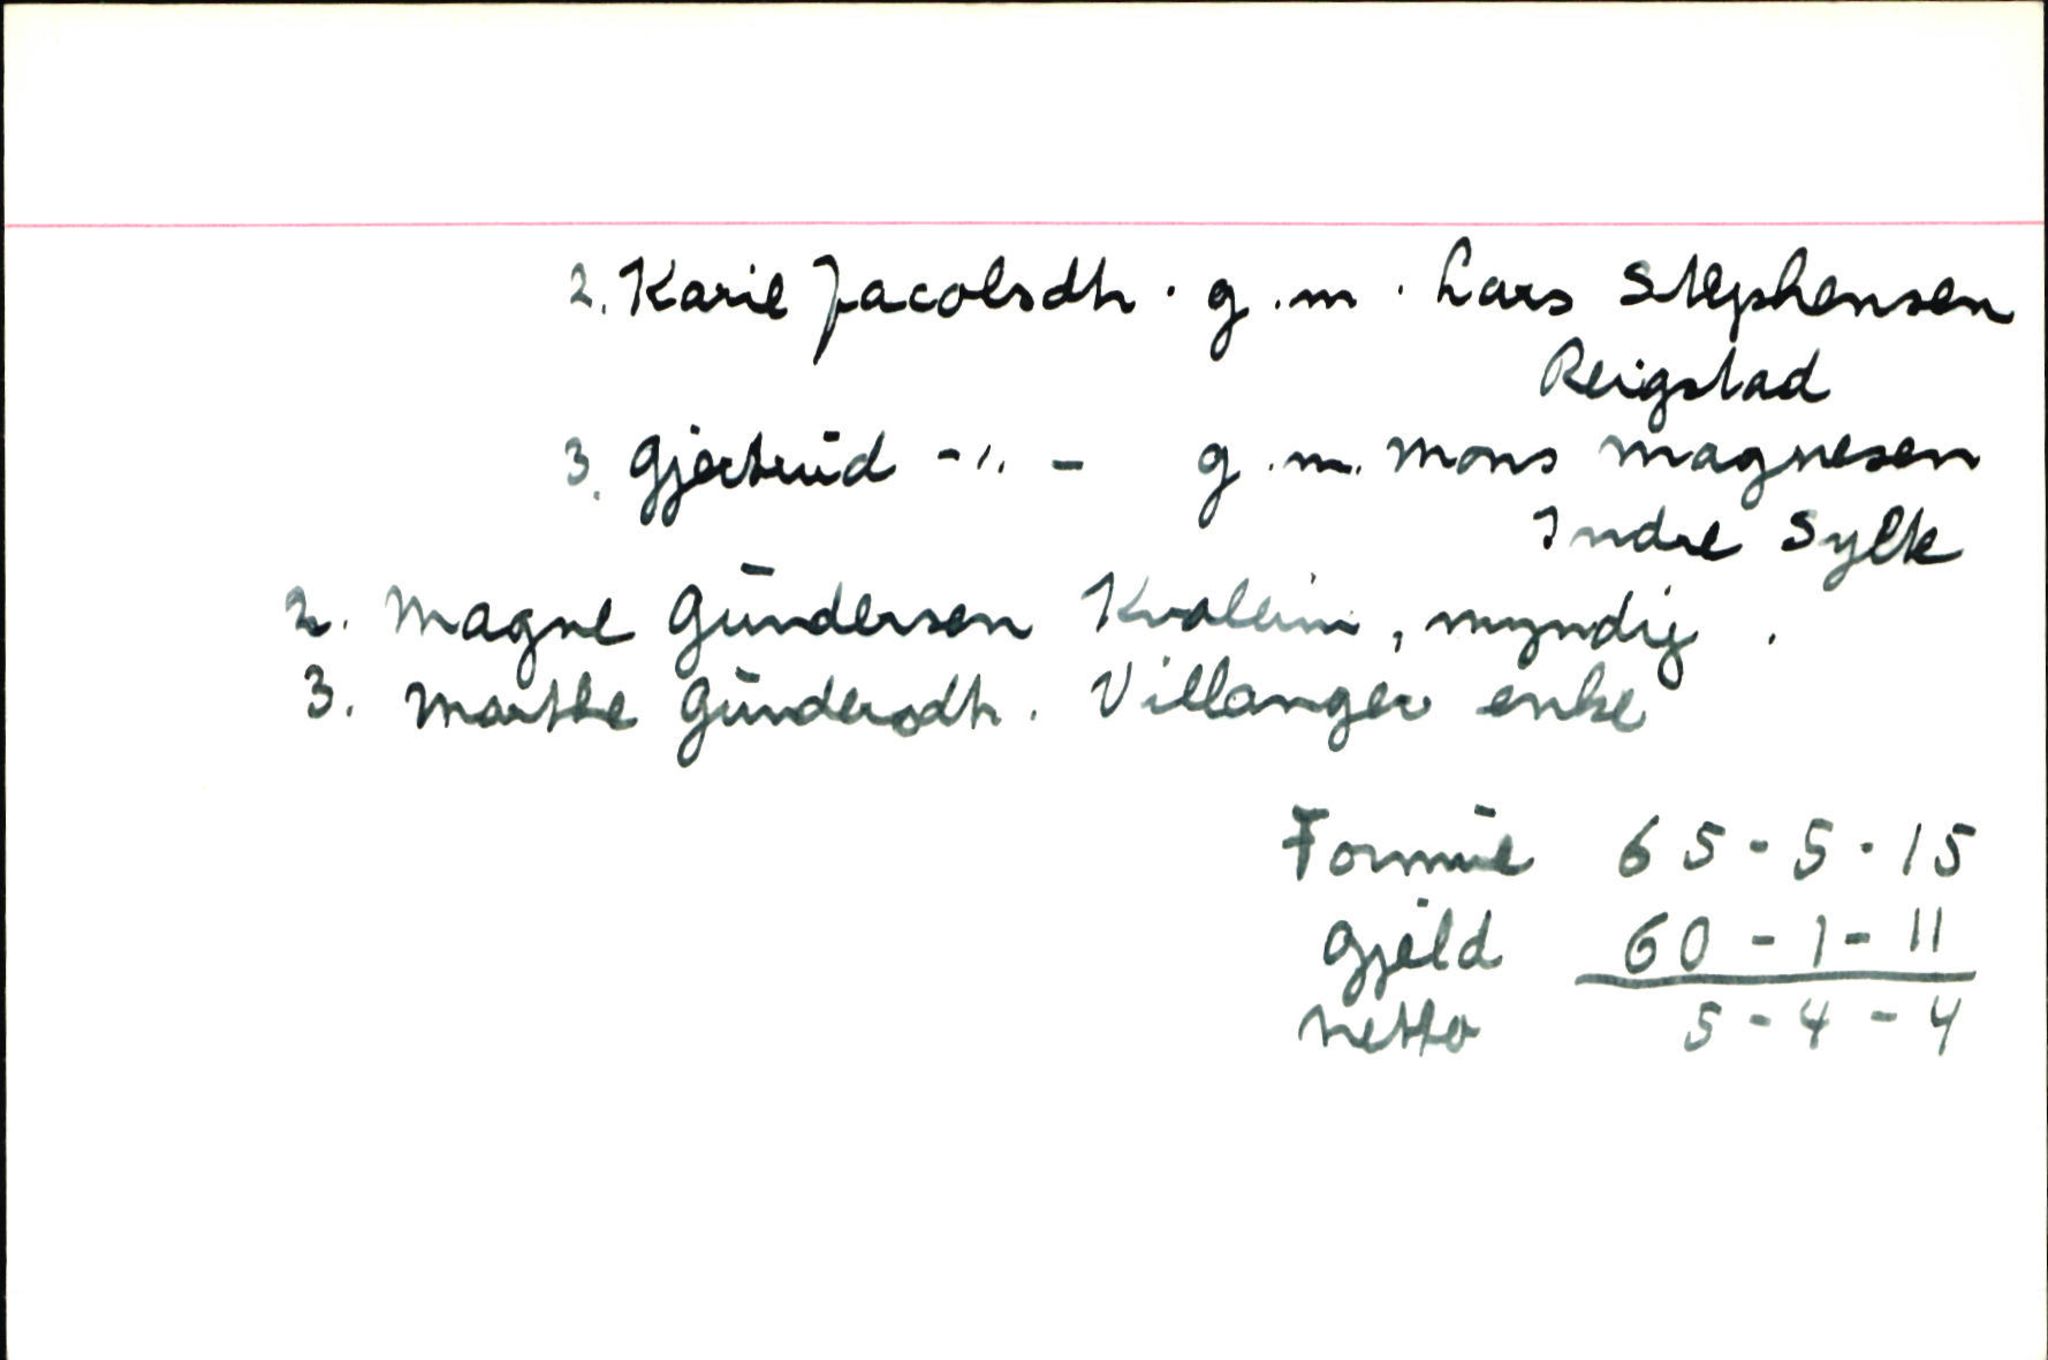 2. Karie Jacobsdtr. g.m. Lars Stephensen
Reigstad
3. Gjertrud -"- g.m. Mons Magnesen
Indre Sylte
2. Magne Gundersen Kvaleim, myndig.
3. Marthe Gundersdtr. Villanger enke
Formue 65-5-15
Gjeld 60-1-11
Netto 5-4-4